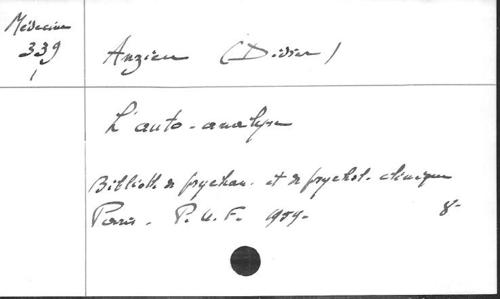 Médecine
339
1
Anzieu (Didier)
L'auto-analyse
Biblioth de psychan. et de psychol. clinique
Paris. P.U.F. 1959.
8-